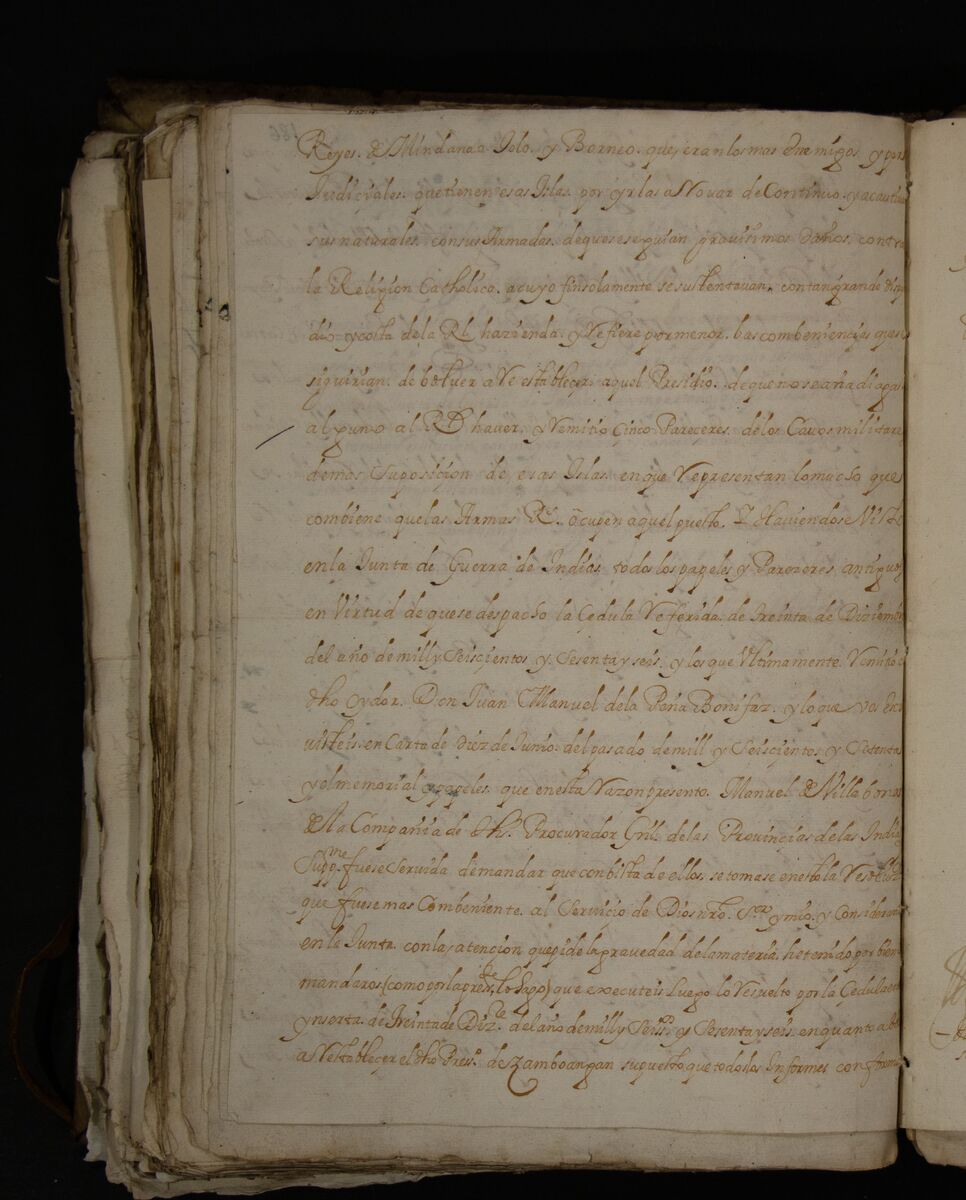 Reyes. de Mindanao Jolo. y Borneo. que eran los mas Enemigos y per
Judiçiales. que tienen esas Islas. por yrlas a Rovar de Continuo. y a cauti
sus naturales. con sus Armadas. de que se seguian gravissimos daños. contra
la Religion Catholica. a cuyo fin solamente se sustentavan. con tan grande dispe
dio y costa de la Rl hazienda. y Refiere por menor. las combeniençias que se
siguirian. de bolver a Restableçer. aquel Presidio. de que no se añadia gas
alguno al Rl haver. y Remitio Cinco Pareçeres. de los Cavos militare
de mas Suposiçion de esas Islas. en que Representan lo mucho que
combiene que las Armas Rs. Ocupen aquel puesto. Y Haviendose Visto
en la Junta de Guerra de Indias todos los papeles y Parezeres antiguos
en Virtud de que se despacho la Çedula Referida. de Treinta de Diziembr
del año de mill y Seisçientos y. Sesenta y seis. y los que Ultimamente. Remitio el
dho oydor. Don Juan Manuel de la Peña Bonifaz. y lo que vos Escri
visteis. en Carta de diez de Junio. del pasado de mill y Seisçientos y Setenta
y el memorial y papeles. que en esta Razon presento. Manuel de Villabona
de la Compañia de Jhs. Procurador Grl. de las Provinçias de las Indias
Suppme. fuese Servida de mandar que con bista de ellos. se tomase en esto la Resoluz
que fuese mas Combeniente. al Serviçio de Dios nro. Sor. y mio. y Considerado
en la Junta. con la atençion que pide la gravedad de la materia. he tenido por bien
mandaros (como por la preste. lo hago) que executeis luego lo Resuelto por la Çedula
ynserta. de Treinta de Dize. del año de mill y Seiss. y Sesenta y seis. en quanto a
a Restableçer el dho Preso. de Zamboangan supuesto que todos los Informes conforman